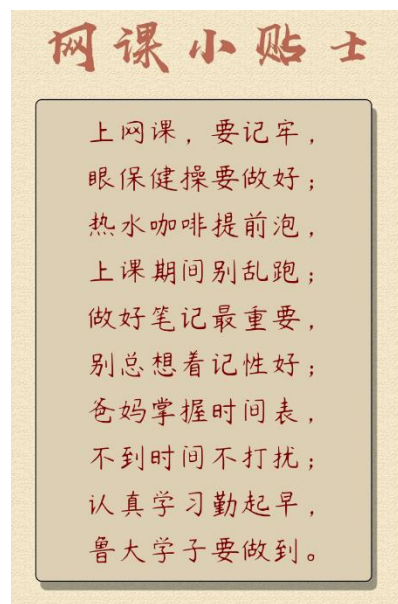 网课小贴士
上网课，要记牢，
眼保健操要做好；
热水咖啡提前泡，
上课期间别乱跑；
做好笔记最重要，
别总想着记性好；
爸妈掌握时间表，
不到时间不打扰；
认真学习勤起早，
鲁大学子要做到。